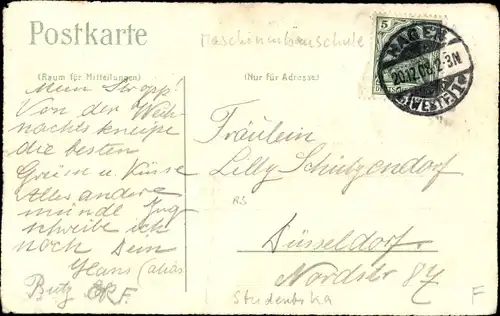 Postkarte
Maschinenbauschule
5
HAGEN
20.12.08.2-3N
(WESTF.) 1
(Raum für Mitteilungen)
(Nur für Adresse)
Mein Stropp!
Von der Weih
nachtskneipe
die besten
Grüsse u. Küsse
Alles andere
mündl.
schreibe ich
noch Dein
Hans (alias
Butz
Fräulein
Lilly Schützendorf
RS
Düsseldorf
Nordstr 87
Studentika
F